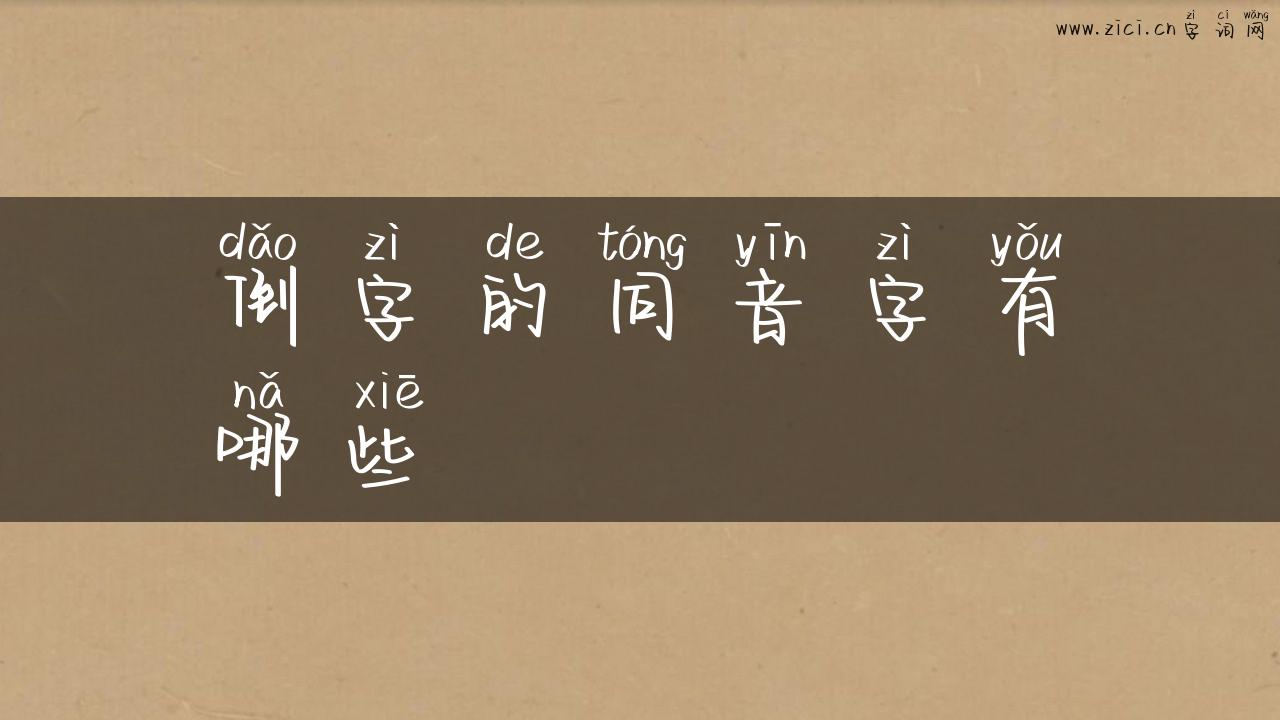 zì cí wǎng
www.zici.cn 字词网
dǎo zì de tóng yīn zì yǒu
倒字的同音字有
nǎ xiē
哪些